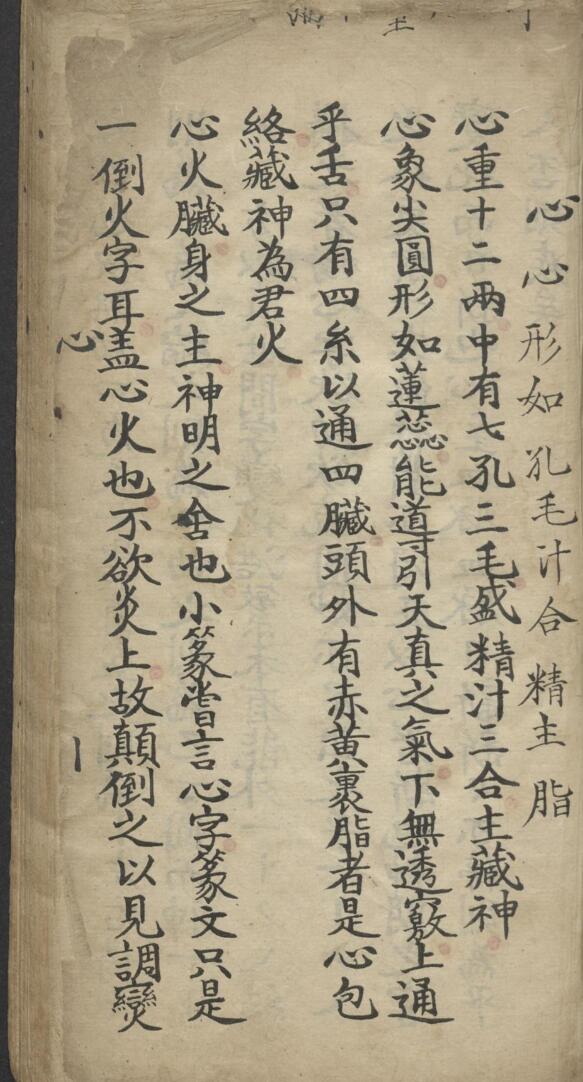 心 心形如孔毛汁合精主脂
心重十二兩中有七孔三毛盛精汁三合主藏神
心象尖圓形如蓮蕊能導引天真之氣下無透竅上通
乎舌只有四糸以通四臟頭外有赤黃裹脂者是心包
絡藏神為君火
心火臟身之主神明之舍也小篆嘗言心字篆文只是
一倒火字耳盖心火也不欲炎上故顛倒之以見調爕
心